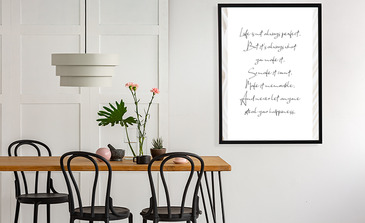 Life isn't always perfect.
But it's always what
you make it.
So make it count.
Make it memorable.
And never let anyone
steal your happiness.